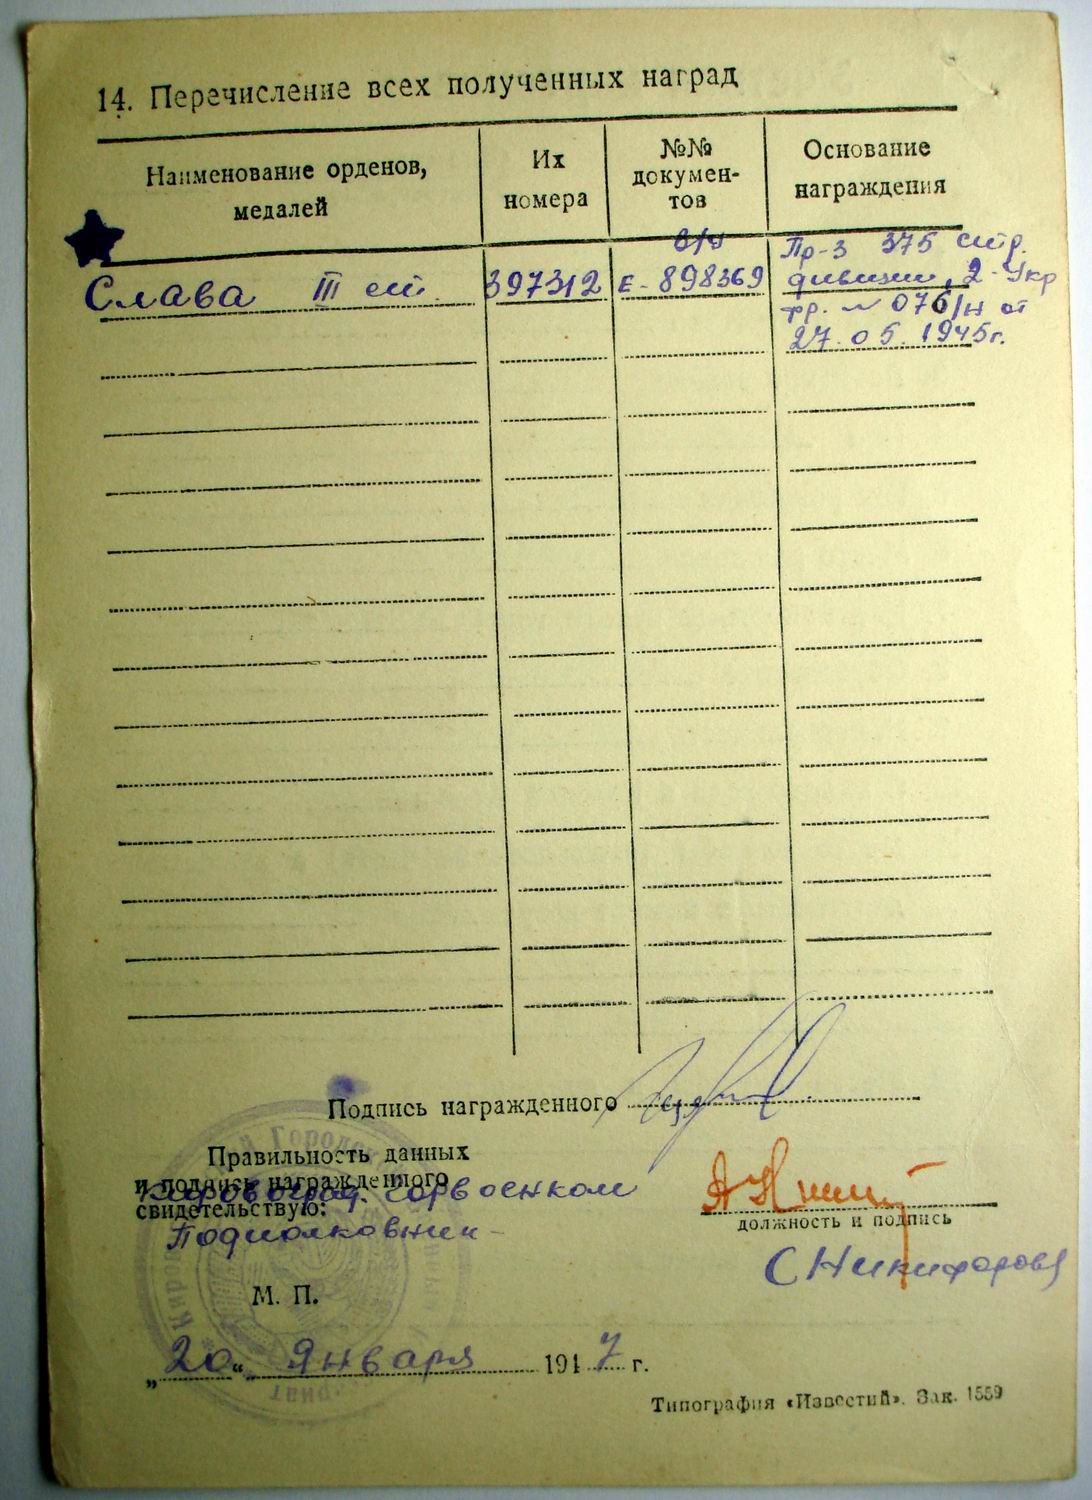 14. Перечисление всех полученных наград
Наименование орденов,
медалей
Их
номера
№№
докумен-
тов
Основание
награждения
Слава III ст.
397312
Е - 898369
Пр-з 375 стр.
дивизии, 2-Укр
фр. № 076/н от
27.05.1945г.
Подпись награжденного
Правильность данных
и подпись награжденного
свидетельствую:
Кировоград. горвоенком
Подполковник
должность и подпись
С Никифоров
М. П.
„20“ Января 1947 г.
Типография «Известий». Зак. 1559